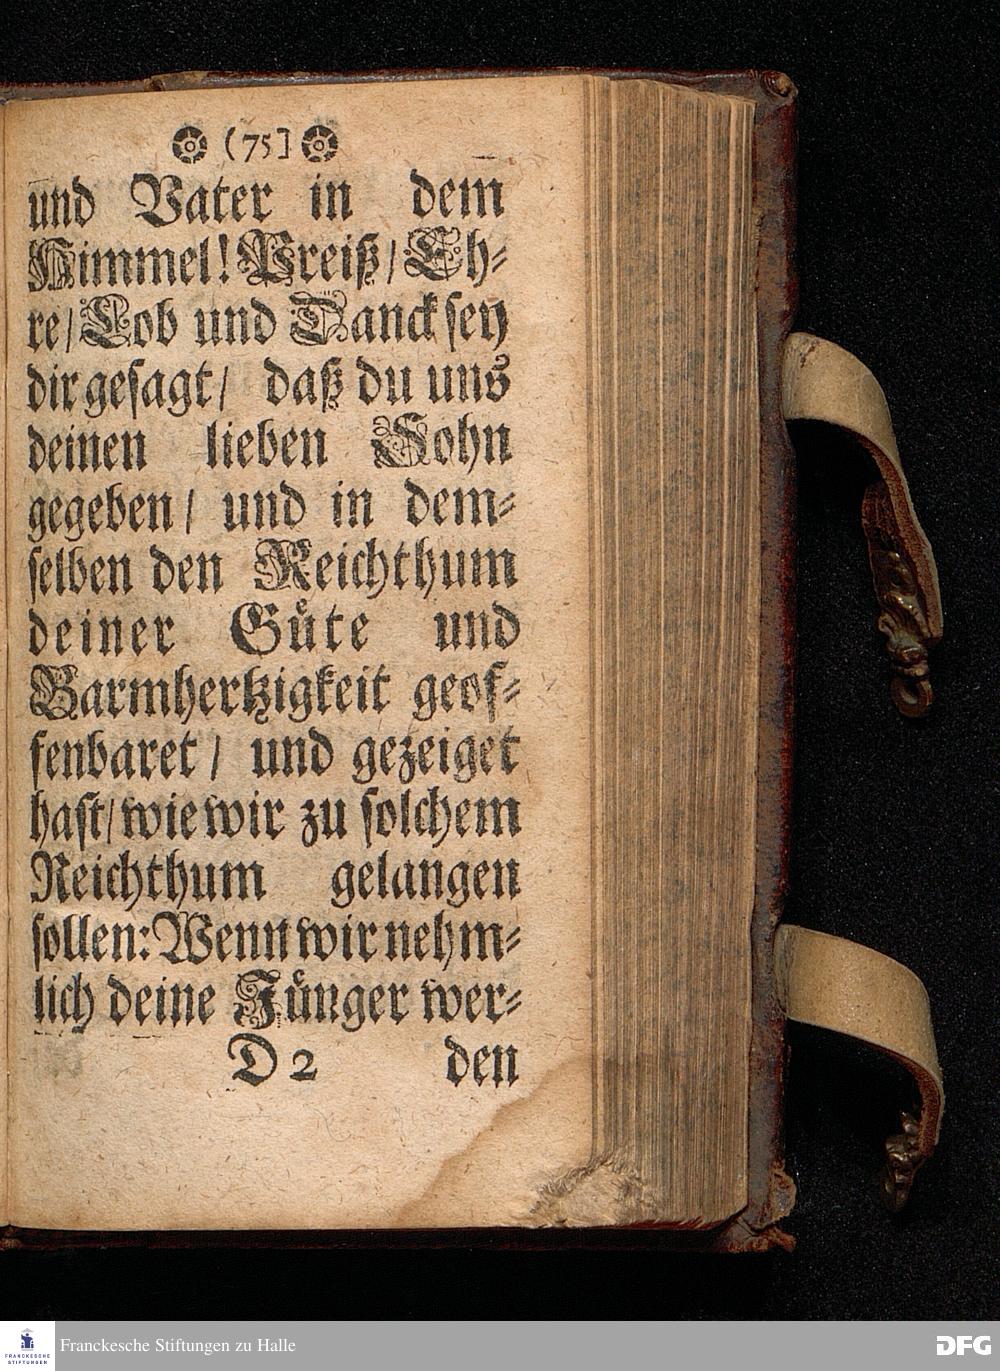 (75]
und Vater in dem
Himmel! Preiß/ Eh-
re/ Lob und Danck sey
dir gesagt/ daß du uns
deinen lieben Sohn
gegeben/ und in dem-
selben den Reichthum
deiner Güte und
Barmhertzigkeit geof-
fenbaret/ und gezeiget
hast/ wie wir zu solchem
Reichthum gelangen
sollen: Wenn wir nehm-
lich deine Jünger wer-
D 2 den
FRANCKESCHE
STIFTUNGEN
Franckesche Stiftungen zu Halle
DFG